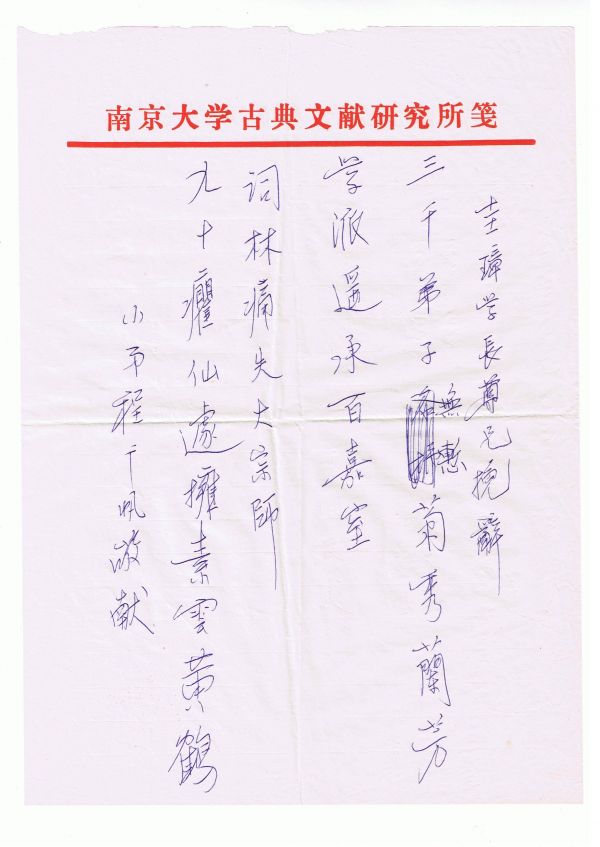 南京大学古典文献研究所笺
圭璋学長尊兄挽辭
三千弟子無慙菊秀蘭芳
学派遥承百嘉室
词林痛失大宗師
九十癯仙遽擁素雲黄鶴
小弟程千帆敬献